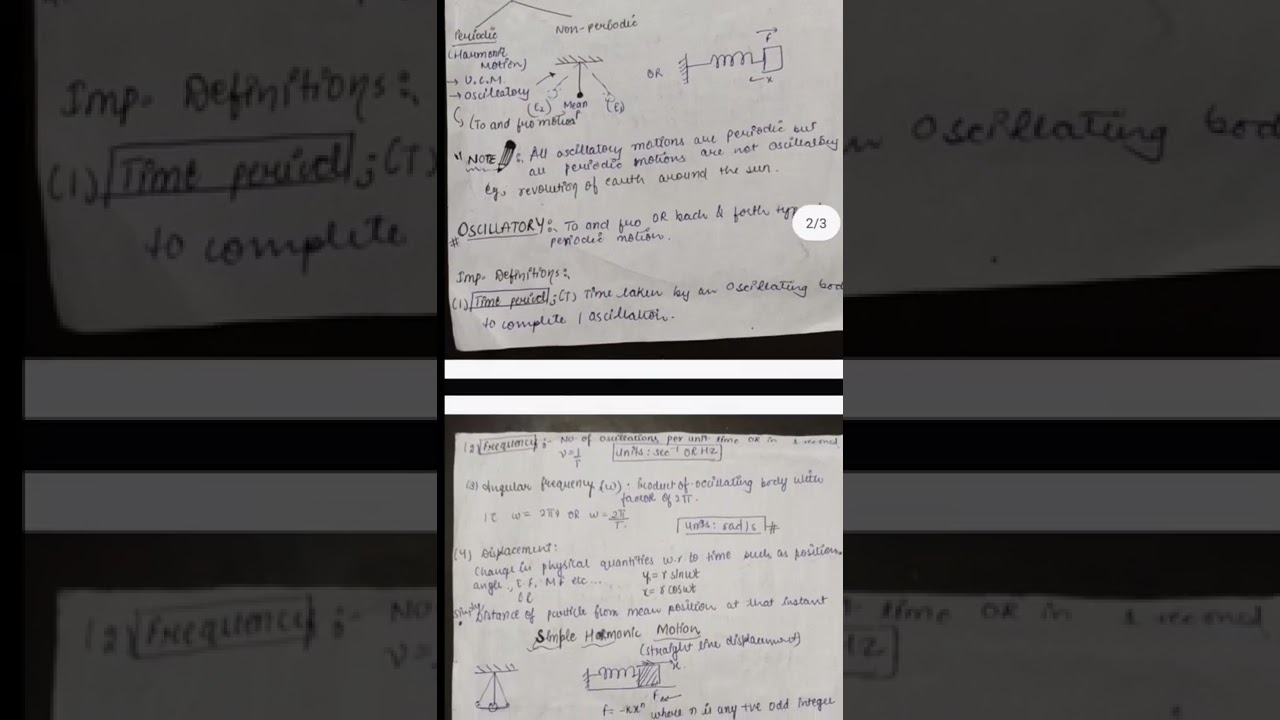 Periodic
Non-periodic
(Harmonic
Motion)
→ U.C.M.
→ Oscillatory
(To and fro motion)
(E2)
Mean
(E1)
OR
F
x
"NOTE :. All oscillatory motions are periodic but
all periodic motions are not oscillatory
eg, revolution of earth around the sun.
# OSCILLATORY:. To and fro OR back & forth
periodic motion.
2/3
Imp. Definitions:.
(1) Time period ; (T) Time taken by an Oscillating bod
to complete 1 oscillation.
(2) Frequency :- No of oscillations per unit time OR in 1 second
ν = 1/T
Units: sec⁻¹ OR HZ
(3) Angular frequency (ω) : Product of oscillating body with
factor of 2π.
ie ω = 2πν OR ω = 2π/T.
Units: rad/s #
(4) Displacement:
Change in physical quantities w.r to time such as position,
angle, E.F, M.F etc...
y = r sinωt
x = r cosωt
OR
Simply Distance of particle from mean position at that instant
Simple Harmonic Motion
(straight line displacement)
x
F
f = -kxⁿ where n is any +ve odd integer
Imp. Definitions:.
(1) Time period ; (T)
to complete
n Oscillating bod
(2) Frequency :- NO
ν =
time OR in 1 second
HZ